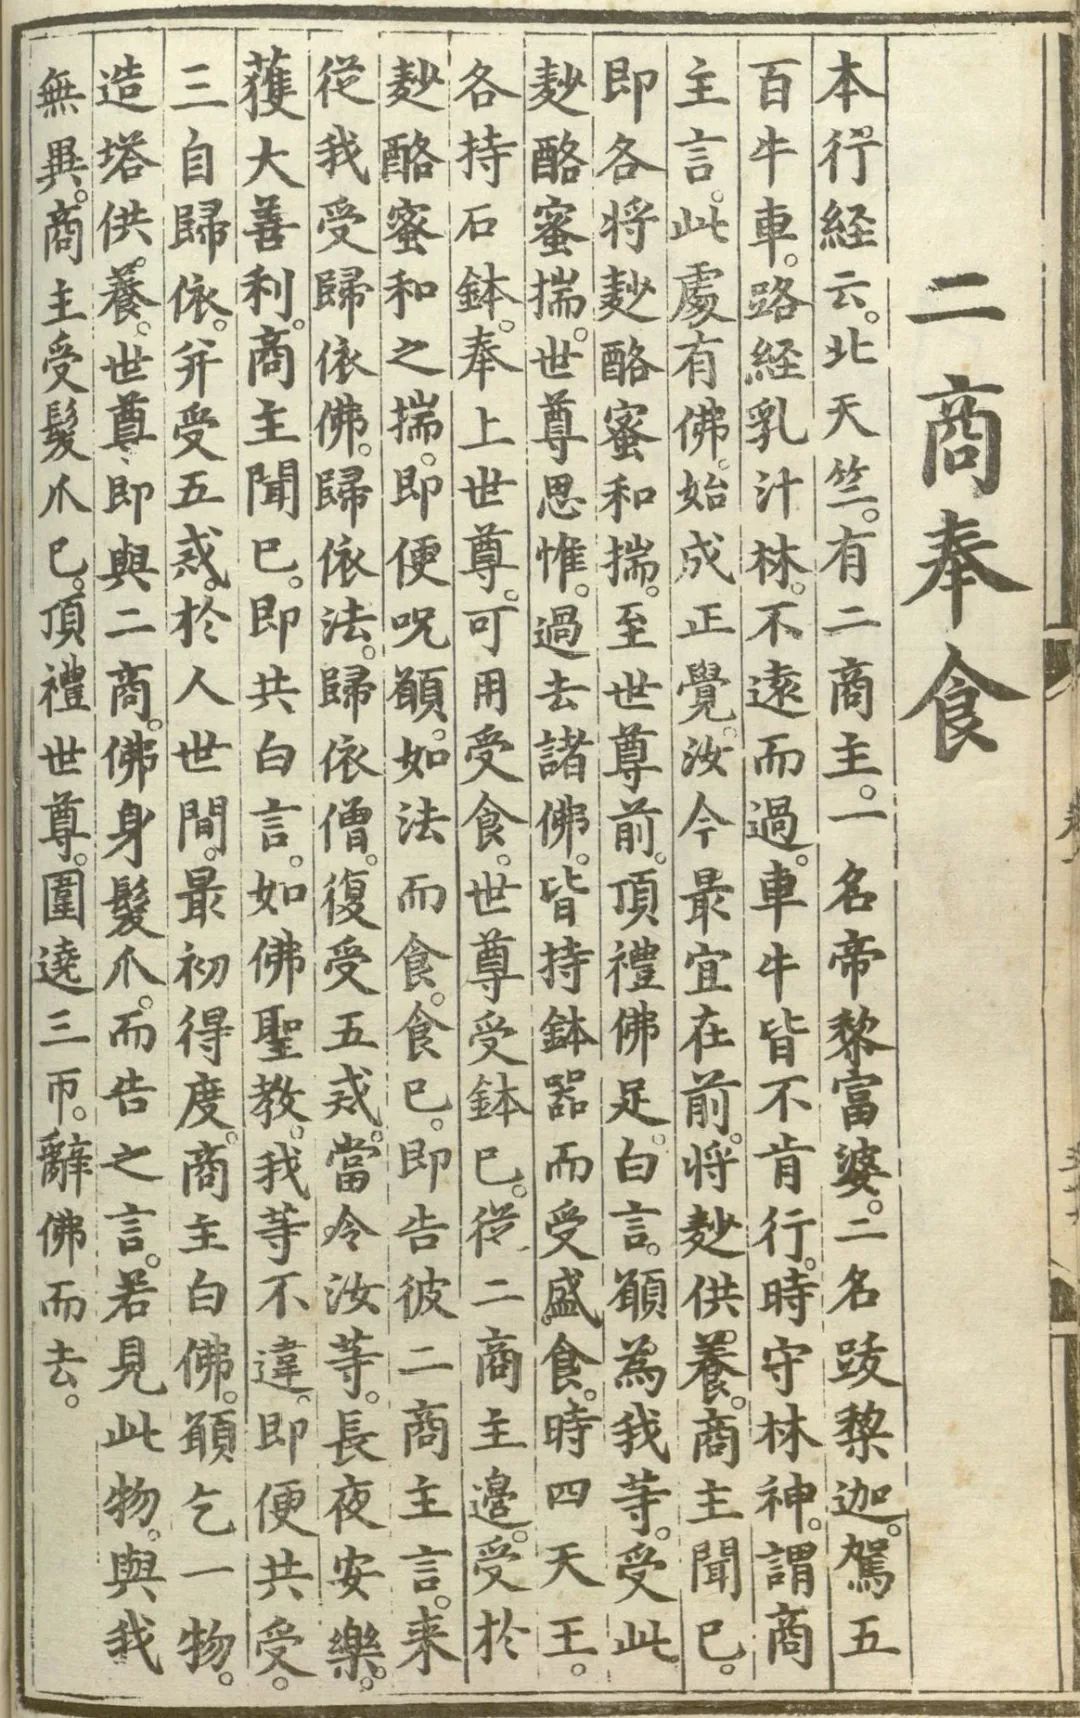 二商奉食
本行経云。北天竺。有二商主。一名帝黎富婆。二名跋黎迦。駕五
百牛車。路経乳汁林。不遠而過。車牛皆不肯行。時守林神。謂商
主言。此處有佛。始成正覺。汝今最宜在前。將麨供養。商主聞已。
即各将麨酪蜜和揣。至世尊前。頂禮佛足。白言。願為我等。受此
麨酪蜜揣。世尊思惟。過去諸佛。皆持鉢器而受盛食。時四天王。
各持石鉢。奉上世尊。可用受食。世尊受鉢已。從二商主邊。受於
麨酪蜜和之揣。即便呪願。如法而食。食已。即告彼二商主言。来
從我受歸依佛。歸依法。歸依僧。復受五戒。當令汝等。長夜安樂。
獲大善利。商主聞已。即共白言。如佛聖教。我等不違。即便共受。
三自歸依。并受五戒。於人世間。最初得度。商主白佛。願乞一物。
造塔供養。世尊即與二商。佛身髮爪。而告之言。若見此物。與我
無異。商主受髮爪已。頂禮世尊。圍遶三帀。辭佛而去。